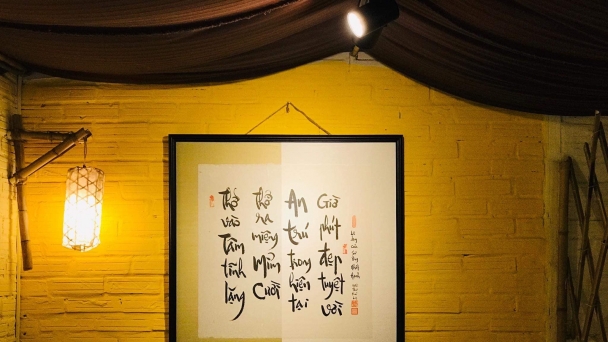 Thở vào Tâm tĩnh lặng
Thở ra miệng Mỉm Cười
An trú trong hiện tại
Giờ phút đẹp tuyệt vời